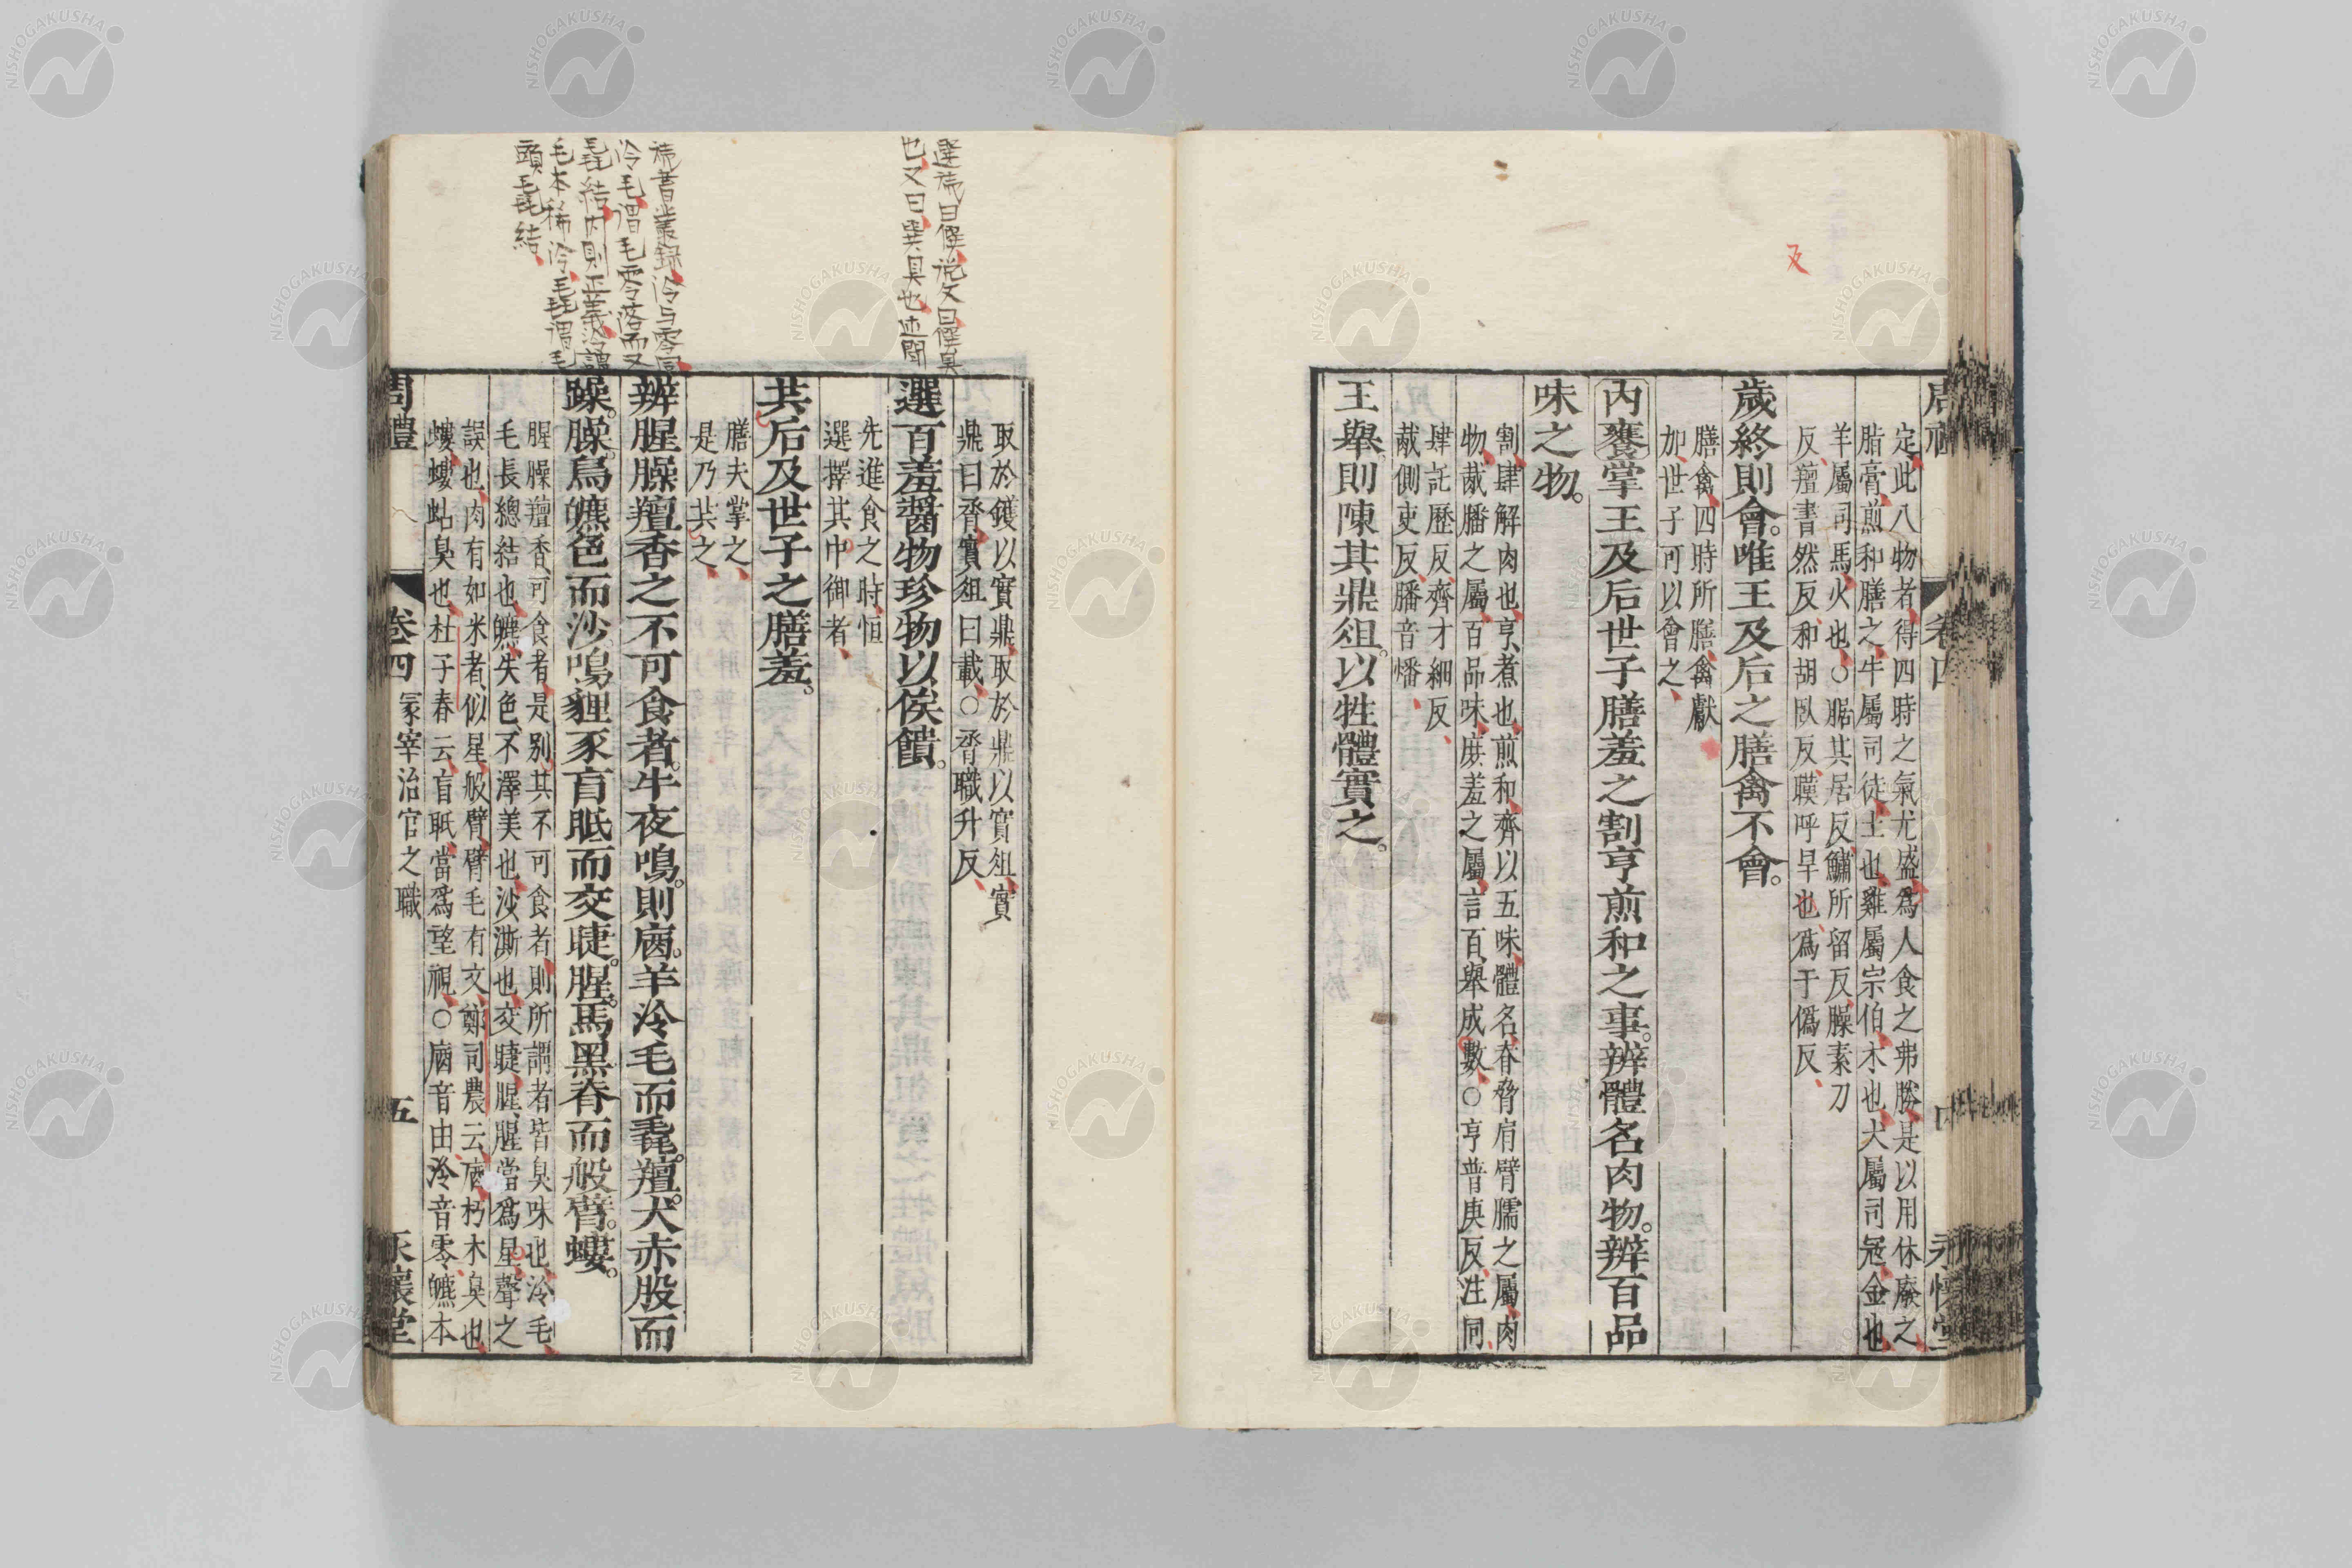 定、此八物者、得四時之氣尤盛、爲人食之弗勝、是以用休廢之
脂膏、煎和膳之、牛屬司徒、土也、雞屬宗伯、木也、犬屬司冦、金也、
羊屬司馬、火也、○腒其居反、鱐所留反、臊素刀
反、羶書然反、和胡臥反、暵呼旱也、爲于僞反、
歲終則會。唯王及后之膳禽不會。
膳禽、四時所膳禽獻、
加、世子可以會之、
內饔掌王及后世子膳羞之割亨煎和之事。辨體名肉物。辨百品
味之物。
割、肆解肉也、亨、煮也、煎和、齊以五味、體名、脊脅肩臂臑之屬、肉
物、胾膰之屬、百品味、庶羞之屬、言百、舉成數、○亨普庚反、注同、
肆託歷反、齊才細反、
胾側吏反、膰音燔、
王舉。則陳其鼎俎。以牲體實之。
取於鑊以實鼎、取於鼎以實俎、實
鼎曰脀、實俎曰載、○脀職升反、
選百羞醬物珍物以俟饋。
先進食之時、恒
選擇其中御者、
共后及世子之膳羞。
膳夫掌之、
是乃共之、
辨腥臊羶香之不可食者。牛夜鳴。則庮。羊泠毛而毳。羶。犬赤股而
躁。臊。鳥皫色而沙鳴貍豕盲眡而交睫。腥。馬黑脊而般臂。螻。
腥臊羶香、可食者、是別其不可食者、則所謂者皆臭味也、泠毛、
毛長總結也、皫、失色、不澤美也、沙、澌也、交睫腥、腥當爲星、聲之
誤也、肉有如米者、似星、般臂、臂毛有文、鄭司農云、庮、朽木臭也、
螻、螻蛄臭也、杜子春云、盲眡、當爲望視、○庮音由、泠音零、皫本
周禮 卷四 冢宰治官之職 五 永懷堂
也、又曰巽、具也、
泠毛、謂毛零落而又
毳結、內則正義、泠謂
毛本稀泠、毳謂毛
頭毳結、